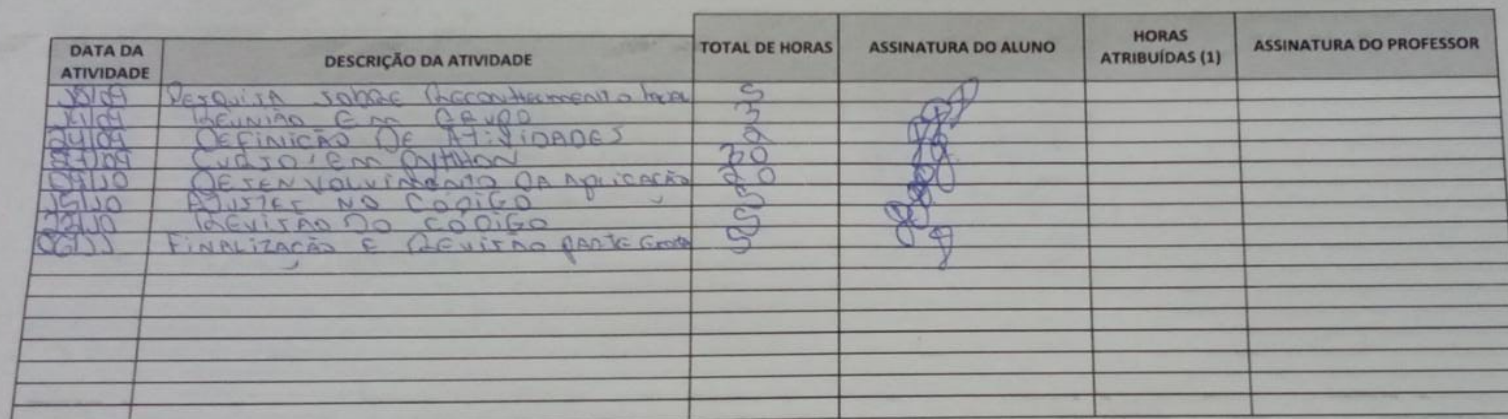 DATA DA ATIVIDADE DESCRIÇÃO DA ATIVIDADE TOTAL DE HORAS ASSINATURA DO ALUNO HORAS ATRIBUÍDAS (1) ASSINATURA DO PROFESSOR
PESQUISA SOBRE RECONHECIMENTO 5
REUNIÃO EM GRUPO 3
24/09 DEFINIÇÃO DE ATIVIDADES 2
27/09 CURSO EM PYTHON
DESENVOLVIMENTO DA APLICAÇÃO 20
15/10 AJUSTES NO CÓDIGO 5
REVISÃO DO CÓDIGO 5
FINALIZAÇÃO E REVISÃO PARTE 5